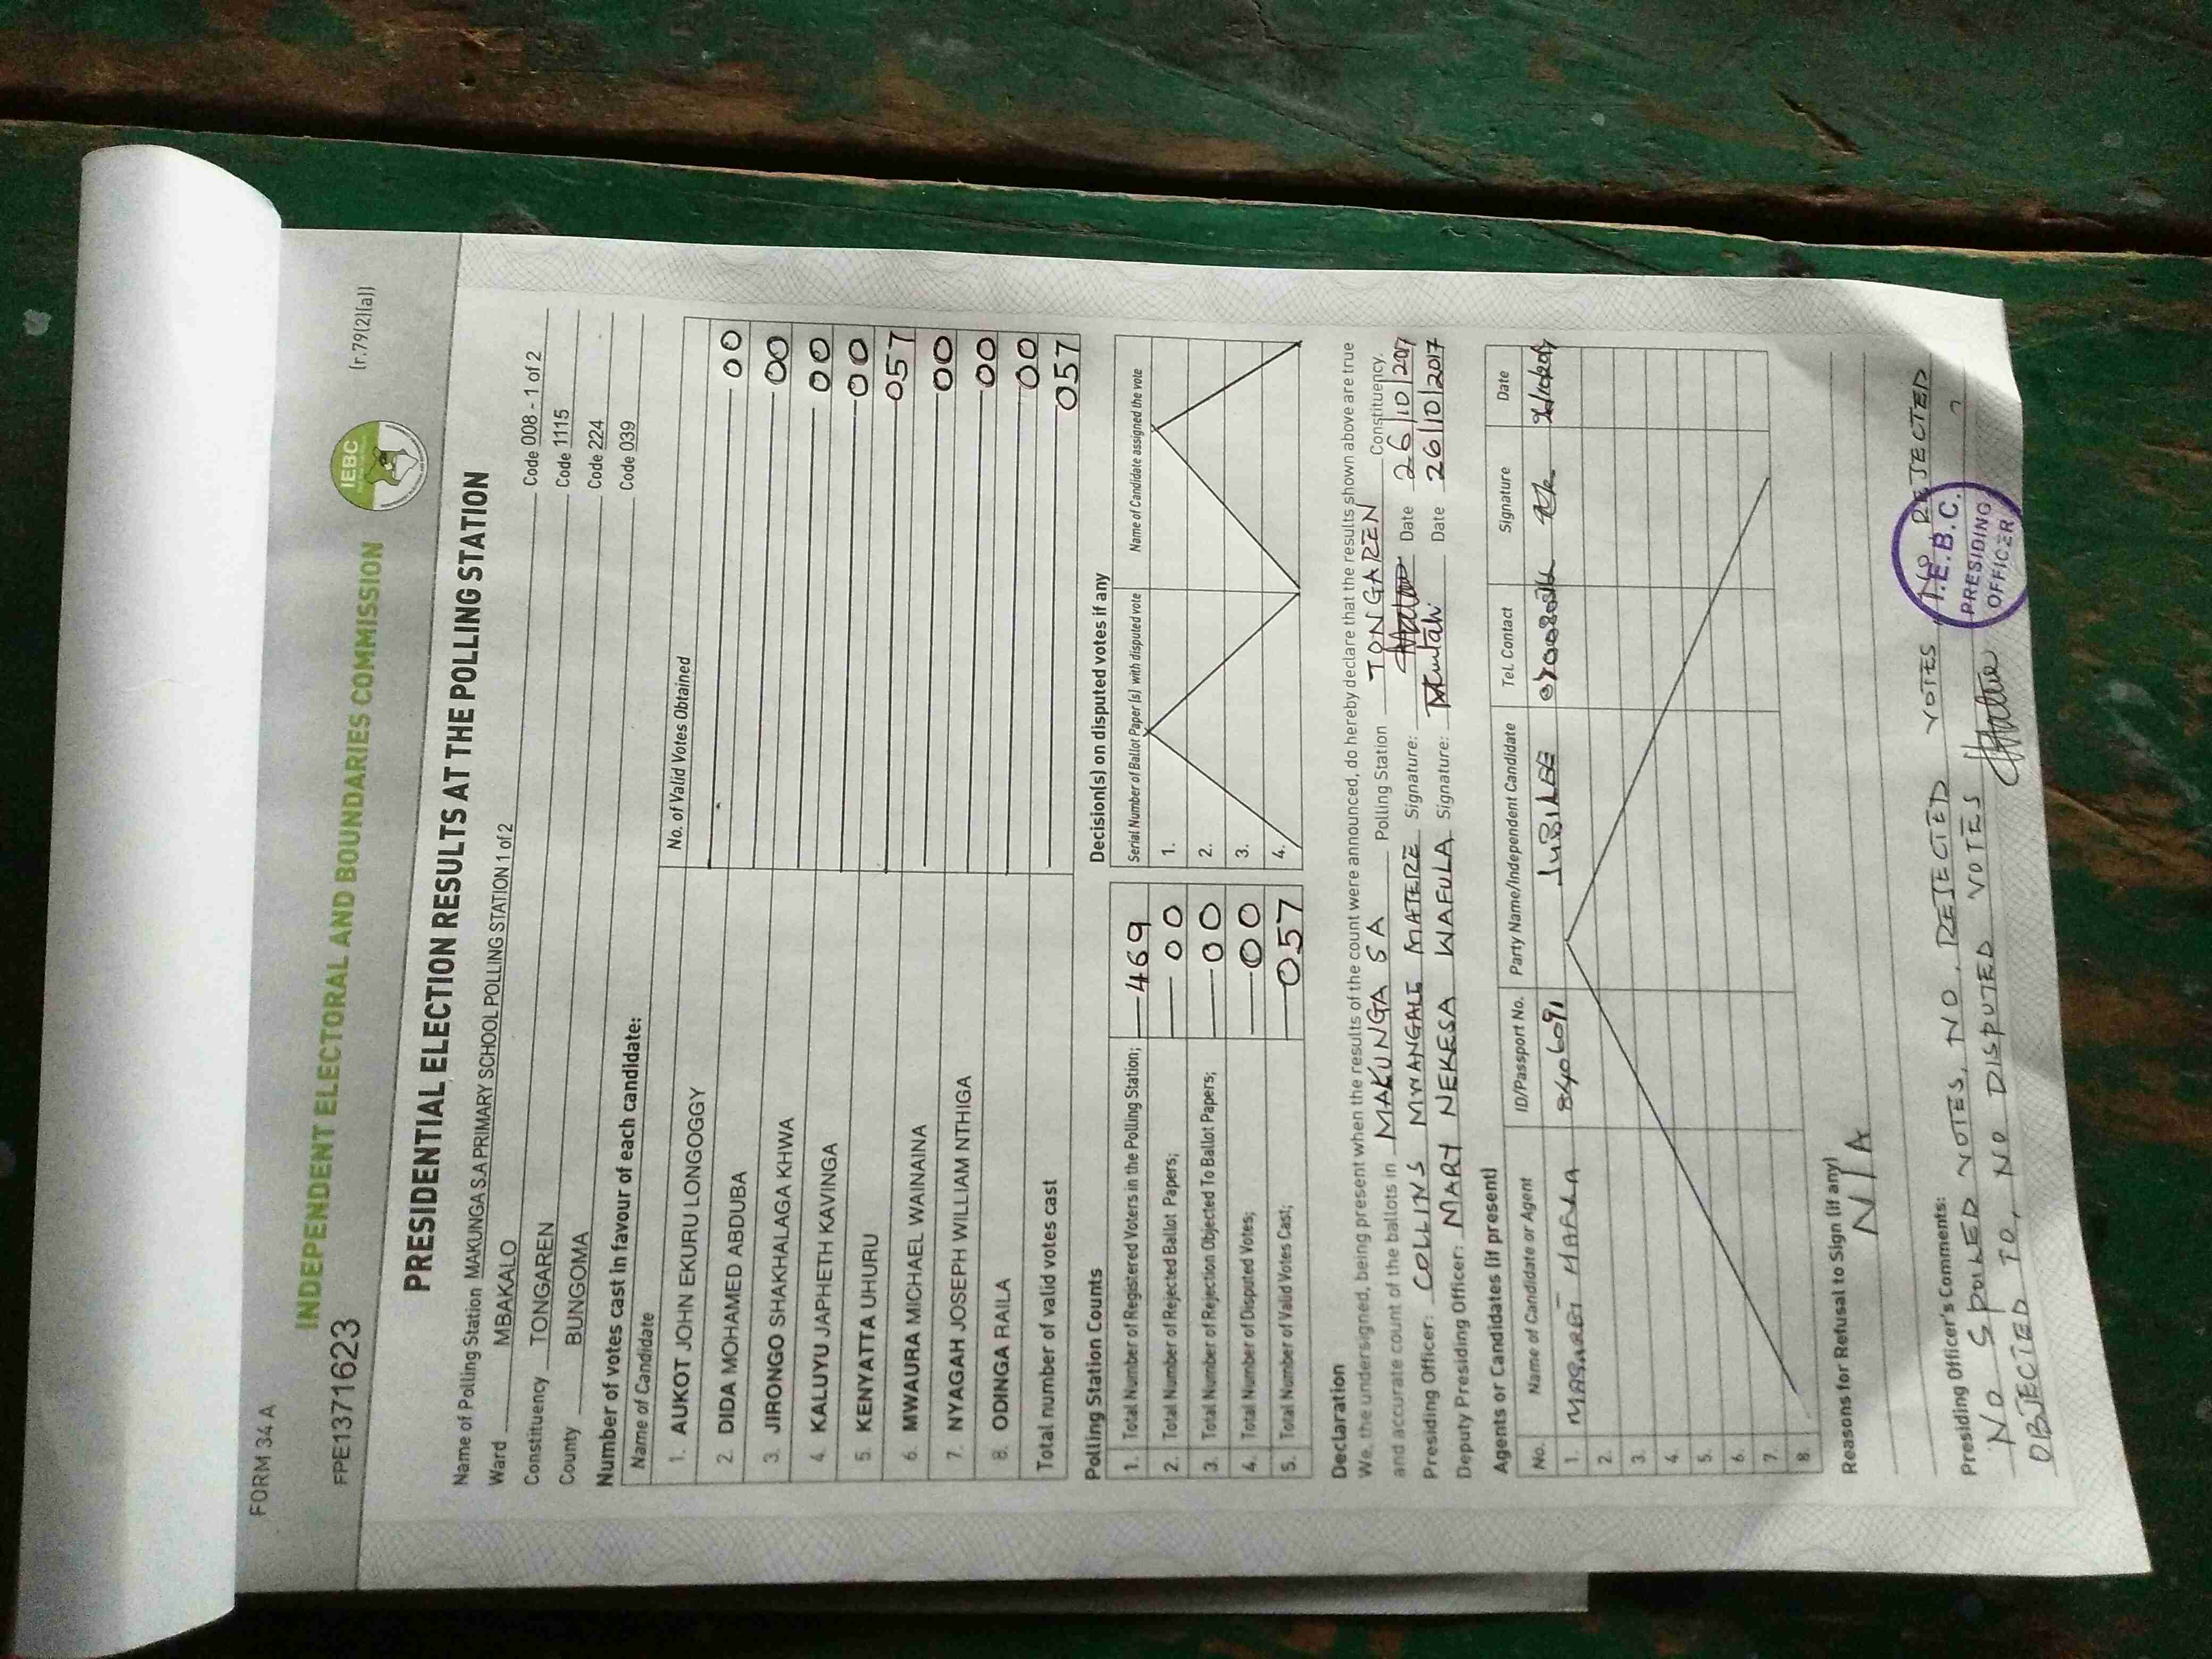 FORM 34 A
INDEPENDENT ELECTORAL AND BOUNDARIES COMMISSION
IEBC
(r.79(2)(a))
FPE1371623
PRESIDENTIAL ELECTION RESULTS AT THE POLLING STATION
Name of Polling Station MAKUNGA S.A PRIMARY SCHOOL POLLING STATION 1 of 2 Code 008 - 1 of 2
Ward MBAKALO Code 1115
Constituency TONGAREN Code 224
County BUNGOMA Code 039
Number of votes cast in favour of each candidate:
Name of Candidate No. of Valid Votes Obtained
1. AUKOT JOHN EKURU LONGOGGY 00
2. DIDA MOHAMED ABDUBA 00
3. JIRONGO SHAKHALAGA KHWA 00
4. KALUYU JAPHETH KAVINGA 00
5. KENYATTA UHURU 057
6. MWAURA MICHAEL WAINAINA 00
7. NYAGAH JOSEPH WILLIAM NTHIGA 00
8. ODINGA RAILA 00
Total number of valid votes cast 057
Polling Station Counts
1. Total Number of Registered Voters in the Polling Station; 469
2. Total Number of Rejected Ballot Papers; 00
3. Total Number of Rejection Objected To Ballot Papers; 00
4. Total Number of Disputed Votes; 00
5. Total Number of Valid Votes Cast; 057
Decision(s) on disputed votes if any
Serial Number of Ballot Paper (s) with disputed vote Name of Candidate assigned the vote
1.
2.
3.
4.
Declaration
We, the undersigned, being present when the results of the count were announced, do hereby declare that the results shown above are true
and accurate count of the ballots in MAKUNGA S A Polling Station TONGAREN Constituency.
Presiding Officer: COLLINS MWANGALE MATERE Signature: Date 26/10/2017
Deputy Presiding Officer: MARY NEKESA WAFULA Signature: Date 26/10/2017
Agents or Candidates (if present)
No. Name of Candidate or Agent ID/Passport No. Party Name/Independent Candidate Tel. Contact Signature Date
1. JUBILEE
2.
3.
4.
5.
6.
7.
8.
Reasons for Refusal to Sign (if any)
N/A
Presiding Officer's Comments:
NO SPOILED VOTES, NO REJECTED VOTES, NO REJECTED
OBJECTED TO, NO DISPUTED VOTES
I.E.B.C.
PRESIDING
OFFICER